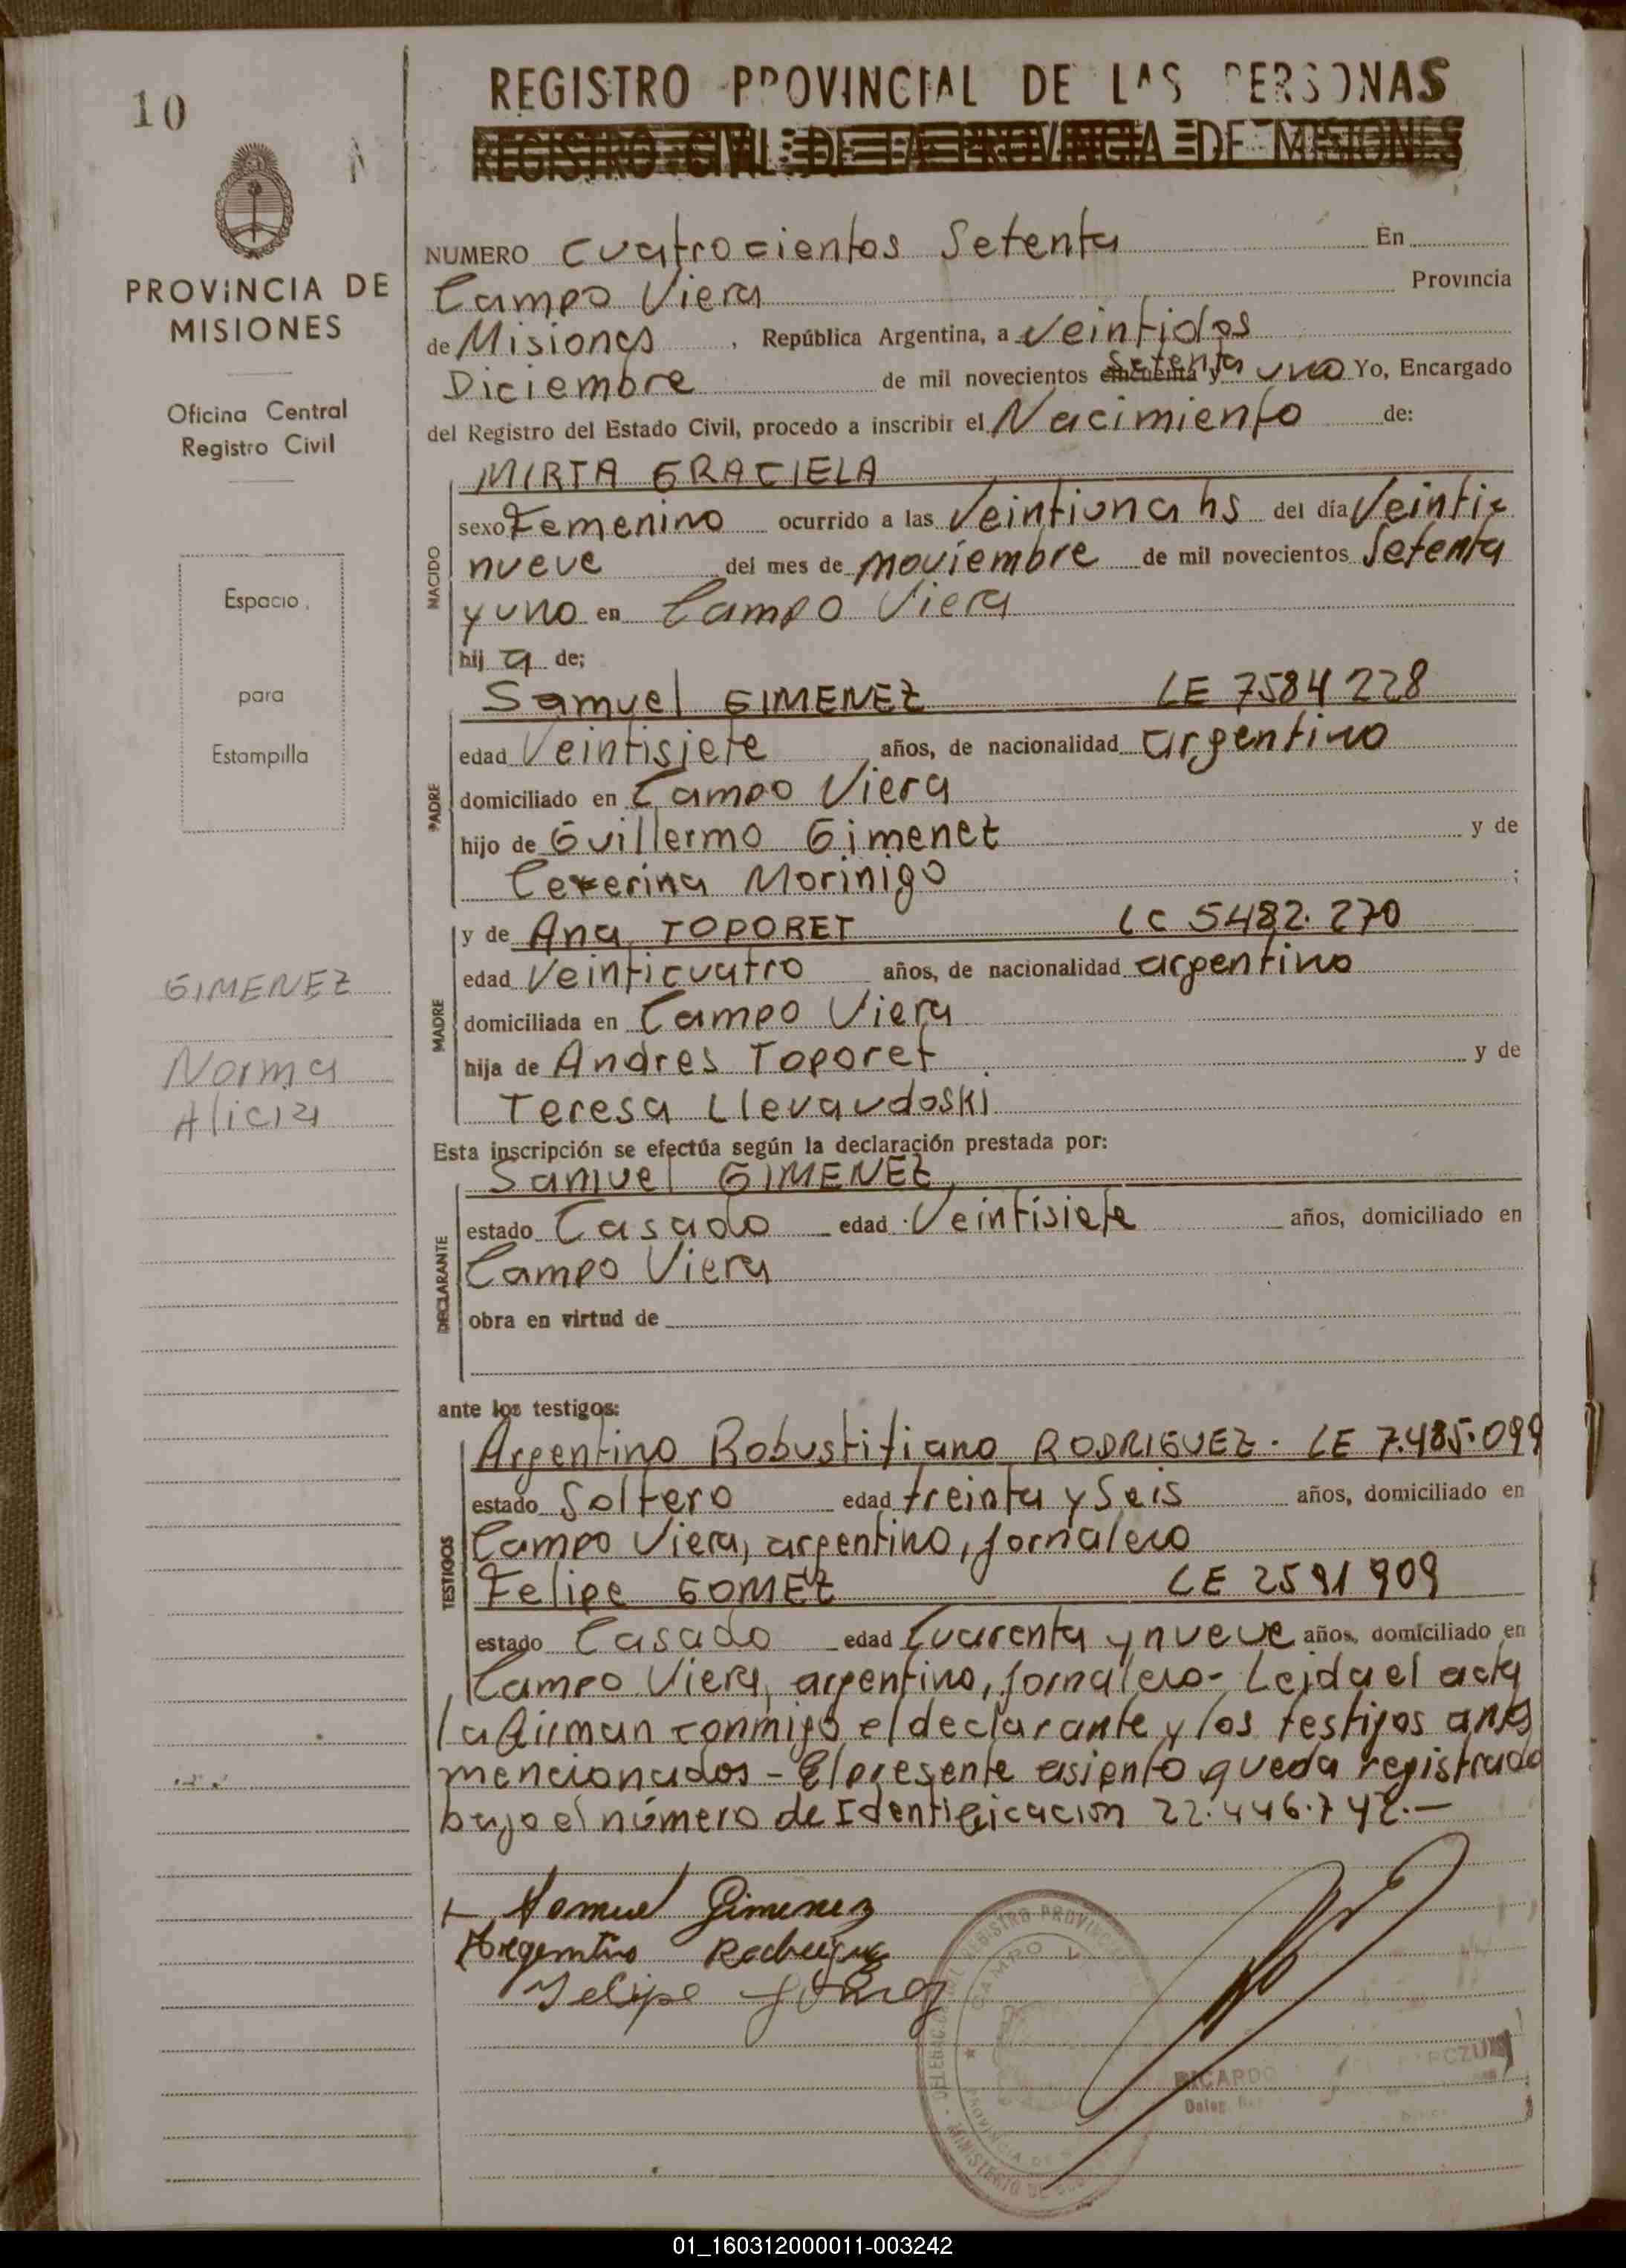 10
REGISTRO PROVINCIAL DE LAS PERSONAS
REGISTRO CIVIL DE LA PROVINCIA DE MISIONES
PROVINCIA DE
MISIONES
Oficina Central
Registro Civil
Espacio
para
Estampilla
GIMENEZ
Norma
Alicia
NUMERO Cuatrocientos Setenta En
Campo Viera Provincia
de Misiones, República Argentina, a Veintidos
Diciembre de mil novecientos cincuenta y Setenta uno Yo, Encargado
del Registro del Estado Civil, procedo a inscribir el Nacimiento de:
NACIDO
MIRTA GRACIELA
sexo Femenino ocurrido a las Veintiuna hs del día Veinti=
nueve del mes de noviembre de mil novecientos Setenta
y uno en Campo Viera
hij a de;
PADRE
Samuel GIMENEZ LE 7584228
edad Veintisiete años, de nacionalidad argentino
domiciliado en Campo Viera
hijo de Guillermo Gimenez y de
Ceverina Morinigo ;
MADRE
y de Ana TOPORET LC 5482.270
edad Veinticuatro años, de nacionalidad argentino
domiciliada en Campo Viera
hija de Andres Toporet y de
Teresa Llevaudoski
Esta inscripción se efectúa según la declaración prestada por:
DECLARANTE
Samuel GIMENEZ
estado Casado edad Veintisiete años, domiciliado en
Campo Viera
obra en virtud de
ante los testigos:
TESTIGOS
Argentino Robustitiano RODRIGUEZ. LE 7.485.099
estado Soltero edad treinta y Seis años, domiciliado en
Campo Viera, argentino, jornalero
Felipe GOMEZ LE 2591909
estado Casado edad Cuarenta y nueve años, domiciliado en
Campo Viera, argentino, jornalero- Leida el acta
la firman conmigo el declarante y los testigos antes
mencionados - El presente asiento queda registrado
bajo el número de Identificacion 22.446.742.-
Samuel Gimenez
Argentino Rodriguez
Felipe Gomez
REGISTRO PROVINCIAL
CAMPO V
PROVINCIA DE
MINISTERIO DE
RICARDO
01_160312000011-003242